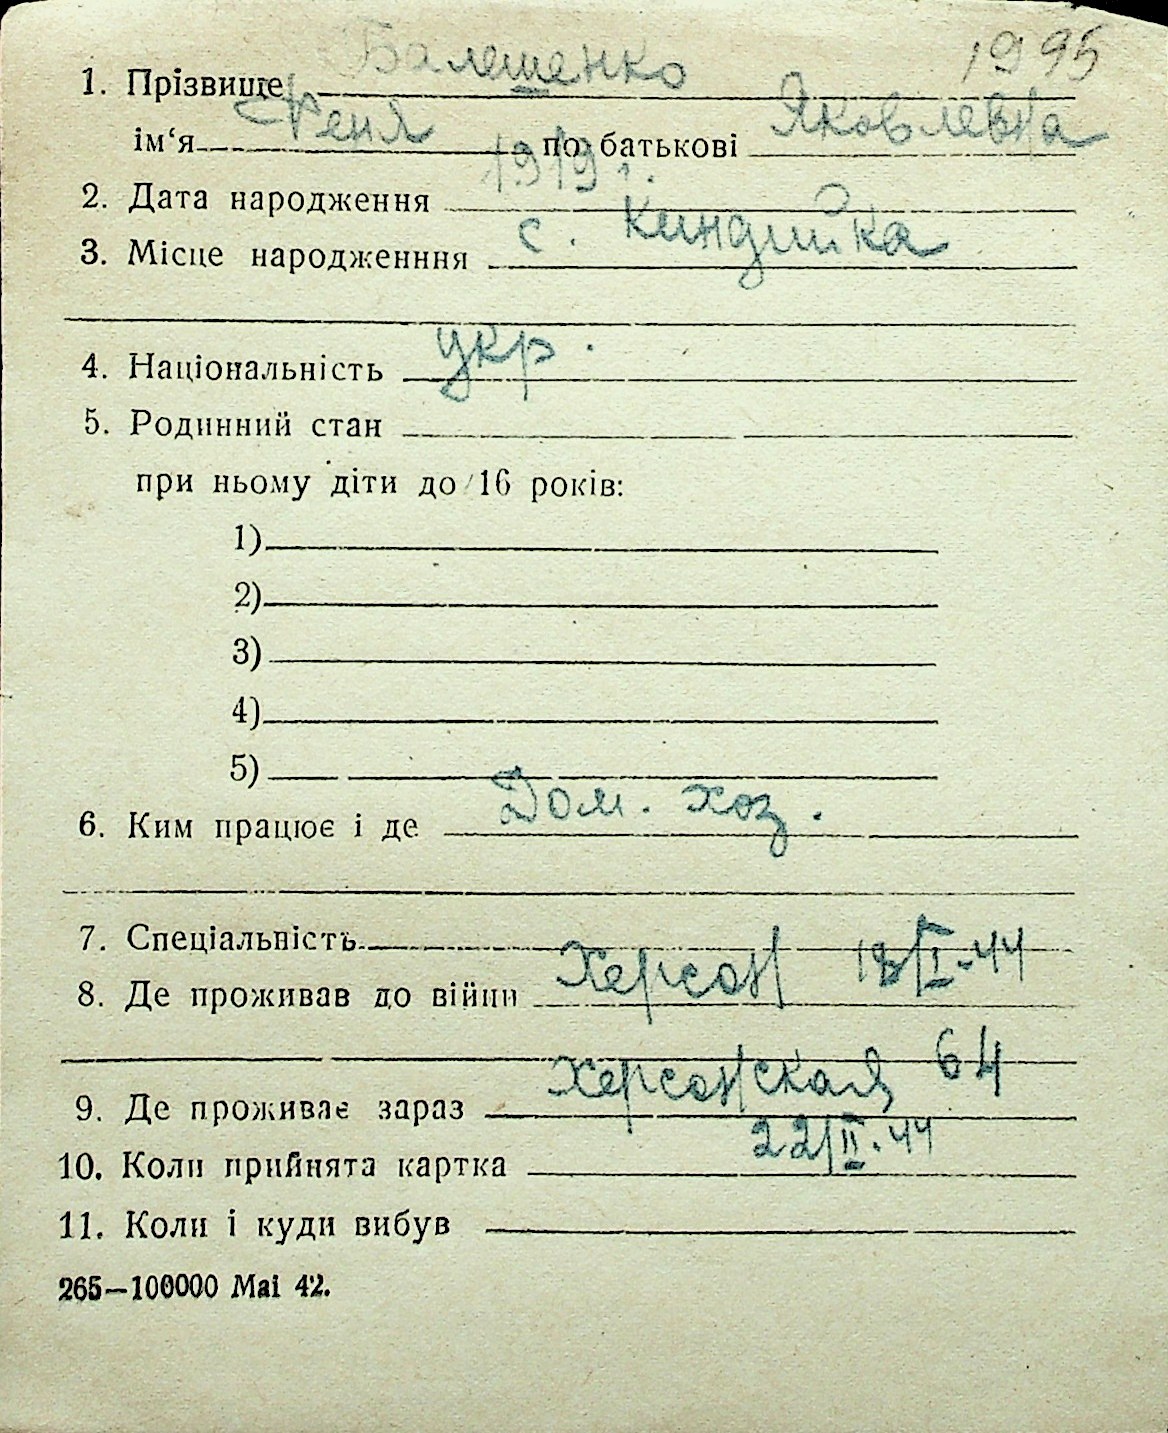 1995
1. Прізвище Балешенко
ім‘я Феня по батькові Яковлевна
2. Дата народження 1919 г.
3. Місце народженння с. Киндийка
4. Національність укр.
5. Родинний стан
при ньому діти до 16 років:
1)
2)
3)
4)
5)
6. Ким працює і де Дом. хоз.
7. Спеціальність
8. Де проживав до війни Херсон 18/I-44
9. Де проживає зараз Херсонская 64
10. Коли прийнята картка 22/II-44
11. Коли і куди вибув
265—100000 Mai 42.